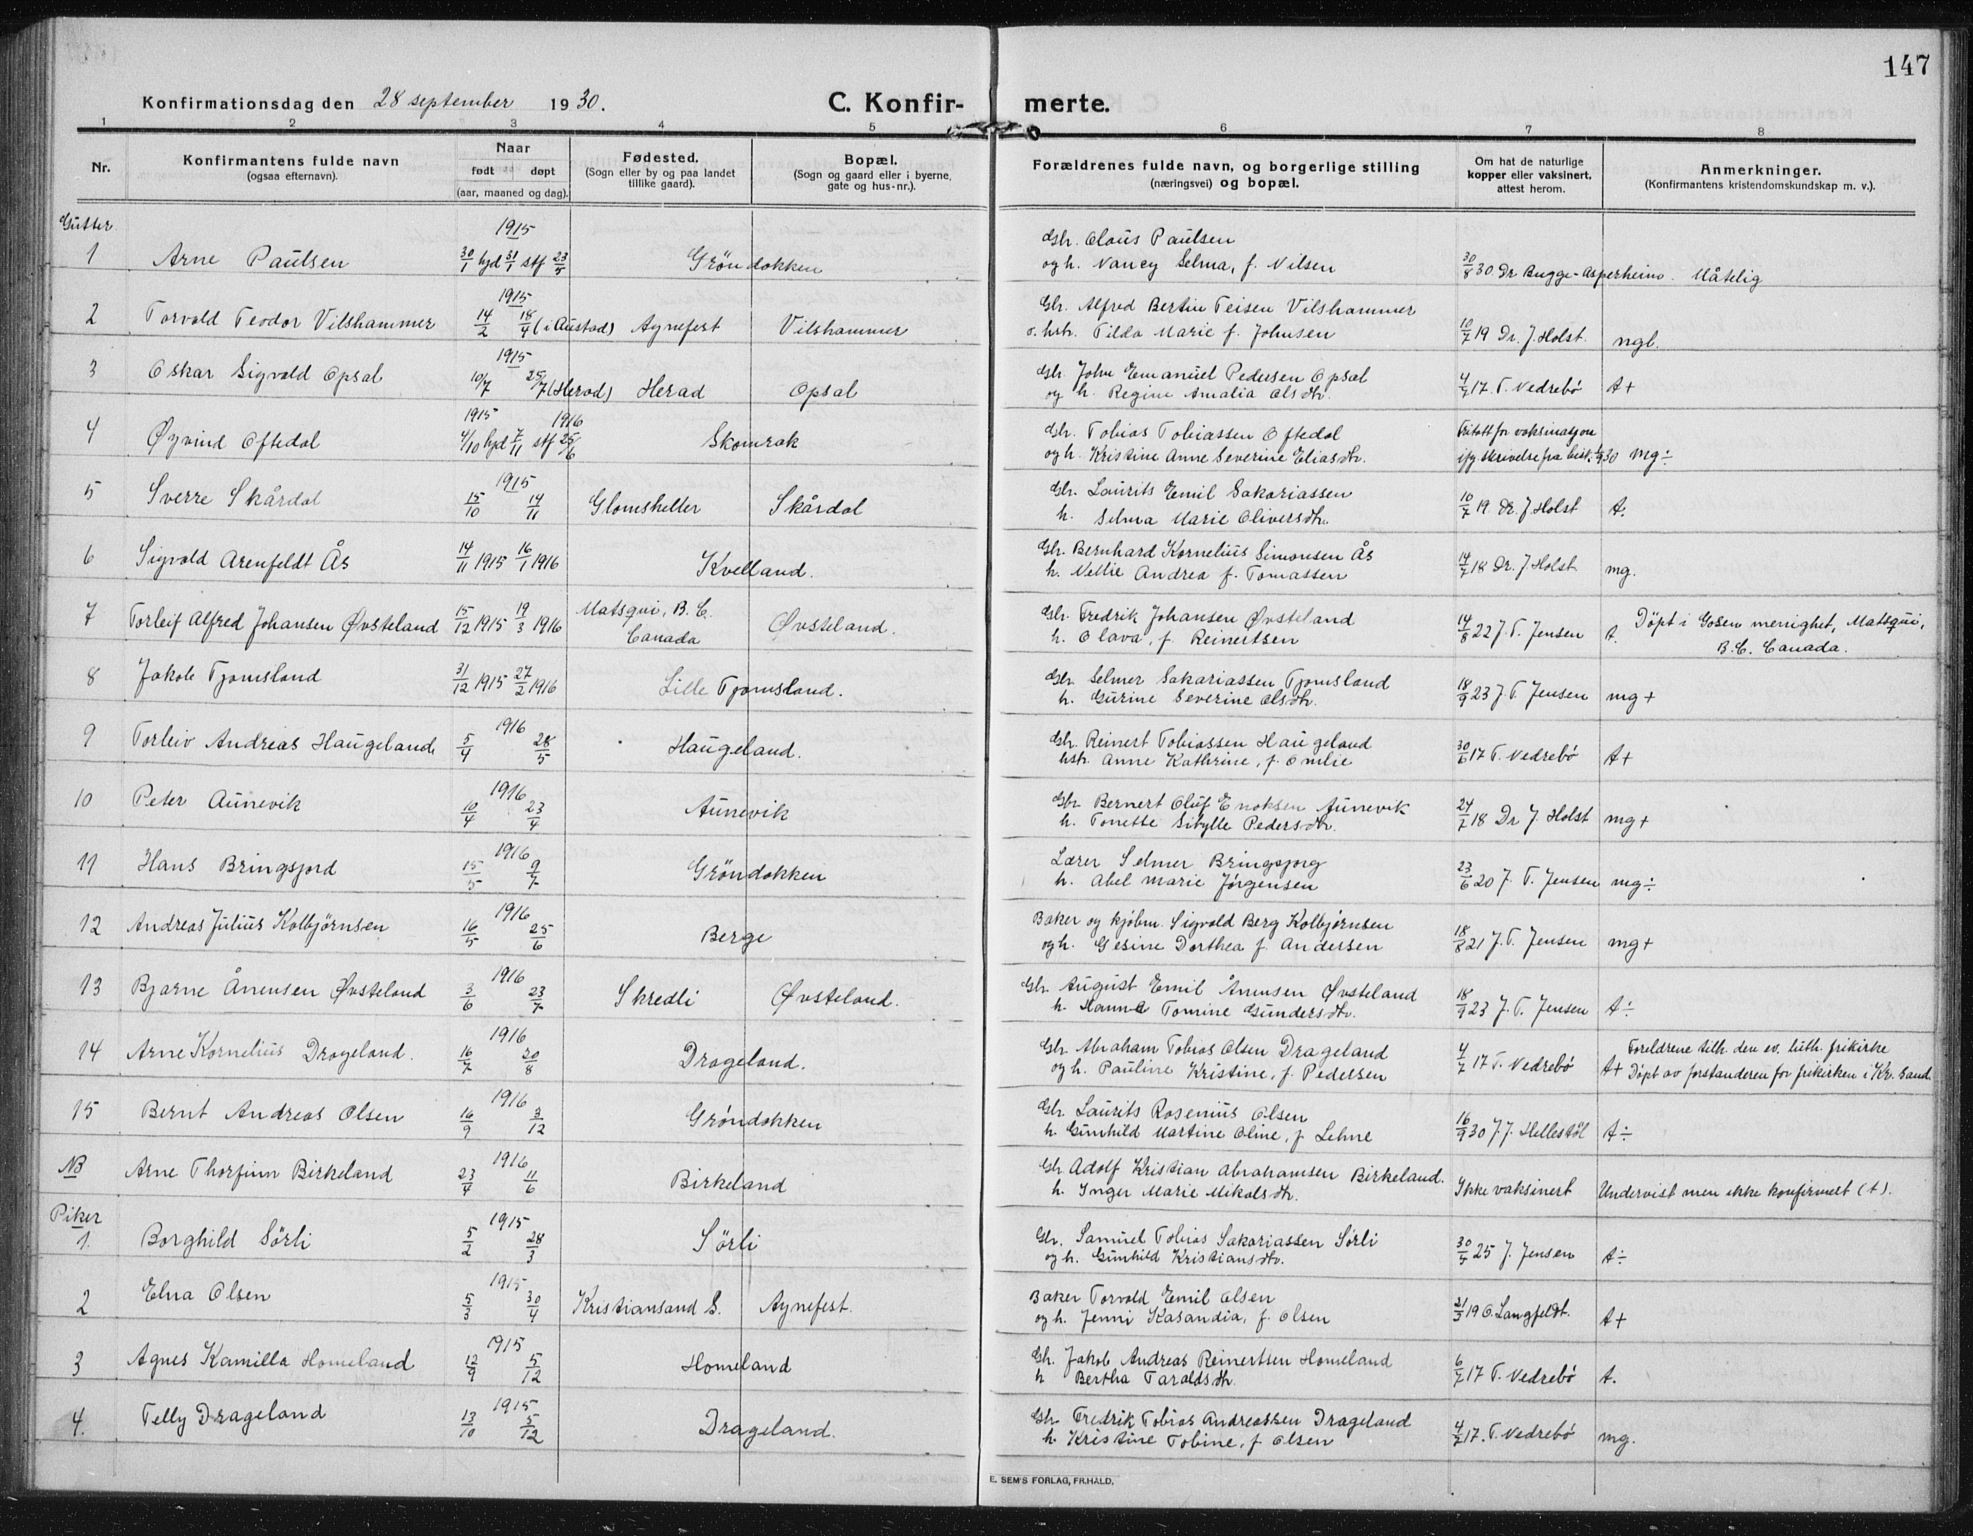 147
Konfirmationsdag den 28 september 1930. C. Konfir- merte.
1 2 3 4 5 6 7 8
Nr. Konfirmantens fulde navn (ogsaa efternavn). Naar født døpt (aar, maaned og dag). Fødested. (Sogn eller by og paa landet tillike gaard). Bopæl. (Sogn og gaard eller i byerne, gate og hus-nr.). Forældrenes fulde navn, og borgerlige stilling (næringsvei) og bopæl. Om hat de naturlige kopper eller vaksinert, attest herom. Anmerkninger. (Konfirmantens kristendomskundskap m. v.).
Gutter
1 Arne Paulsen 1915 30/1 hjd 31/1 stf 23/5 Gröndokken Gbr. Claus Paulsen og h. Nancy Selma, f. Nilsen 30/8 30 Dr Bugge-Asperheim. Måtelig
2 Torvald Teodor Vilshammer 1915 14/2 18/4 (i Austad) Agnefest Vilshammer Gbr. Alfred Bertin Teisen Vilshammer o. hstr. Tilda Marie f. Johnsen 10/7 19 Dr. J. Holst. ngl.
3 Oskar Sigvald Opsal 1915 10/7 25/7 (Herad) Herad Opsal Gbr. John Emanuel Pedersen Opsal og h. Regine Amalia Olsdtr. 4/7 17. T. Vedrebø A+
4 Øyvind Oftedal 1915 4/10 hjd 7/11 1916 stf 25/6 Skomrak Gbr. Tobias Tobiassen Oftedal og h. Kristine Anne Severine Eliasdtr. Fritatt for vaksinasjon ifg skrivelse fra 30 mg÷
5 Sverre Skårdal 1915 15/10 14/11 Glomsheller Skårdal Gbr. Laurits Emil Sakariassen h. Selma Marie Oliversdtr. 10/7 19 Dr. J Holst A÷
6 Sigvald Arenfeldt Ås 14/11 1915 16/1 1916 Kvelland. Gbr. Bernhard Kornelius Simonsen Ås h. Nellie Andrea f. Tomassen 14/7 18 Dr. J Holst mg.
7 Torleif Alfred Johansen Øvsteland 15/12 1915 19/3 1916 Matsqui, B. C. Canada Øvsteland. Gbr. Fredrik Johansen Øvsteland h. Olava, f. Reinertsen 14/8 22 J. T. Jensen A. Döpt i Gosen menighet, Matsqui, B.C. Canada.
8 Jakob Tjomsland 31/12 1915 27/2 1916 Lille Tjomsland. Gbr Selmer Sakariassen Tjomsland h. Gurine Severine Olsdtr. 18/9 23 J. T. Jensen mg+
9 Torleiv Andreas Haugeland 1916 5/4 28/5 Haugeland. Gbr. Reinert Tobiassen Haugeland hstr. Anne Kathrine, f. Omlie 30/6 17 T. Vedrebø A+
10 Peter Aunevik 1916 10/4 23/4 Aunevik Gbr Bernert Oluf Enoksen Aunevik h. Tonette Sibylle Pedersdtr. 24/7 18 Dr J Holst mg+
11 Hans Bringsjord 1916 15/5 9/7 Gröndokken Lærer Selmer Bringsjorg h. Abel Marie Jørgensen 23/6 20 J. T. Jensen mg÷
12 Andreas Julius Kolbjørnsen 1916 16/5 25/6 Berge Baker og kjøbm. Sigvald Berg Kolbjørnsen og h. Gesine Dorthea f. Andersen 18/8 21 J. T. Jensen mg+
13 Bjarne Ånensen Øvsteland 1916 3/6 23/7 Skredli Øvsteland. Gbr. August Emil Ånensen Øvsteland h. Hanna Tomine Gundersdtr. 18/9 23 J. T. Jensen A÷
14 Arne Kornelius Drageland. 1916 16/7 20/8 Drageland. Gbr. Abraham Tobias Olsen Drageland og h. Pauline Kristine, f. Pedersen 4/7 17 T. Vedrebø A+ Foreldrene tilh. den ev. luth. frikirke Döpt av forstanderen for frikirken i Kr. Sand.
15 Bernt Andreas Olsen 1916 16/9 3/12 Grøndokken Gbr. Laurits Rosenius Olsen h. Gunhild Martine Oline, f. Lehne 16/9 30 J. J. Hellestöl A÷
NB Arne Thorfinn Birkeland 1916 23/4 11/6 Birkeland Gbr Adolf Kristian Abrahamsen Birkeland. h. Inger Marie Mikalsdtr. Ikke vaksinert Undervist men ikke konfirmert (A).
Piker
1. Borghild Sörli 1915 5/2 28/3 Sörli Gbr. Samuel Tobias Sakariassen Sörli og h. Gunhild Kristiansdtr. 30/5 25 J. Jensen A÷
2 Elna Olsen 1915 5/3 30/4 Kristiansand S. Agnefest. Baker Torvald Emil Olsen og h. Jenni Kasandia, f. Olsen 31/5 19 O. Langfeldt. A+
3 Agnes Kamilla Homeland 1915 12/9 5/12 Homeland Gbr. Jakob Andreas Reinertsen Homeland h Bertha Taraldsdtr. 6/7 17 T. Vedrebø A.
4. Telly Drageland 1915 13/10 5/12 Drageland. Gbr. Fredrik Tobias Andreassen Drageland h. Kristine Tobine, f. Olsen 4/7 17. T. Vedrebø mg.
E. SEM'S FORLAG, FR.HALD.